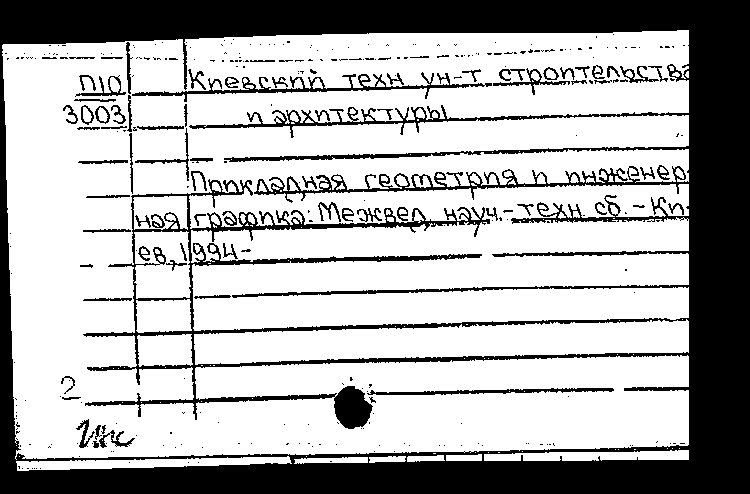 П10 Киевский техн ун-т строительства
3003 и архитектуры
Прикладная геометрия и инженер-
ная графика: Межвед. науч.-техн сб. - Ки-
ев, 1994-
2